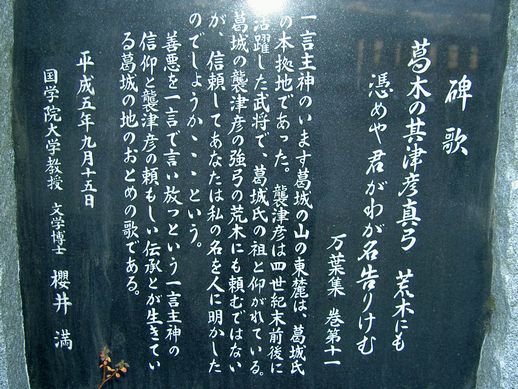 碑歌
葛木の其津彦真弓　荒木にも
憑めや君がわが名告りけむ
万葉集　巻第十一
一言主神のいます葛城の山の東麓は、葛城氏
の本拠地であった。襲津彦は四世紀末前後に
活躍した武将で、葛城氏の祖と仰がれている。
葛城の襲津彦の強弓の荒木にも頼むではない
が、信頼してあなたは私の名を人に明かした
のでしょうか、、という。
善悪を一言で言い放つという一言主神の
信仰と襲津彦の頼もしい伝承とが生きてい
る葛城の地のおとめの歌である。
平成五年九月十五日
国学院大学教授　文学博士　櫻井　満